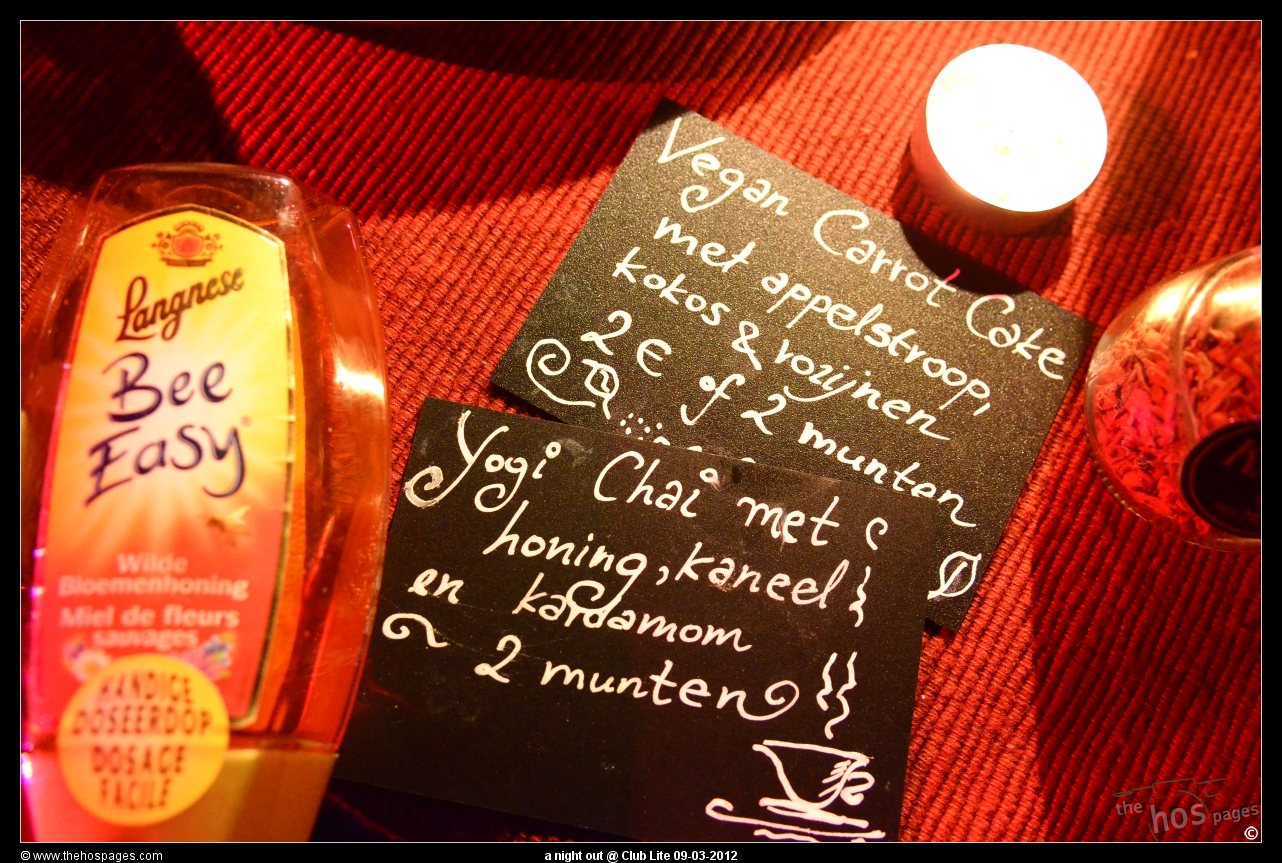 Langnese
Bee
Easy
Wilde
Bloemenhoning
Miel de fleurs
sauvages
HANDIGE
DOSEERDOP
DOSAGE
FACILE
Vegan Carrot Cake
met appelstroop,
kokos & rozijnen
2€ of 2 munten
Yogi Chai met
honing, kaneel
en kardamom
2 munten
the hos pages
©
© www.thehospages.com
a night out @ Club Lite 09-03-2012